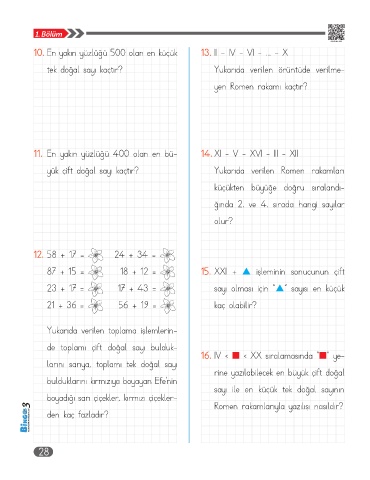 1. Bölüm
10. En yakın yüzlüğü 500 olan en küçük
tek doğal sayı kaçtır?
11. En yakın yüzlüğü 400 olan en bü-
yük çift doğal sayı kaçtır?
12. 58 + 17 =
24 + 34 =
87 + 15 =
18 + 12 =
23 + 17 =
17 + 43 =
21 + 36 =
56 + 19 =
Yukarıda verilen toplama işlemlerin-
de toplamı çift doğal sayı bulduk-
larını sarıya, toplamı tek doğal sayı
bulduklarını kırmızıya boyayan Efe'nin
boyadığı sarı çiçekler, kırmızı çiçekler-
den kaç fazladır?
13. II - IV - VI - ... - X
Yukarıda verilen örüntüde verilme-
yen Romen rakamı kaçtır?
14. XI - V - XVI - III - XII
Yukarıda verilen Romen rakamları
küçükten büyüğe doğru sıralandı-
ğında 2. ve 4. sırada hangi sayılar
olur?
15. XXI + ▲ işleminin sonucunun çift
sayı olması için "▲" sayısı en küçük
kaç olabilir?
16. IV < ■ < XX sıralamasında "■" ye-
rine yazılabilecek en büyük çift doğal
sayı ile en küçük tek doğal sayının
Romen rakamlarıyla yazılışı nasıldır?
BİNGO! 3
28